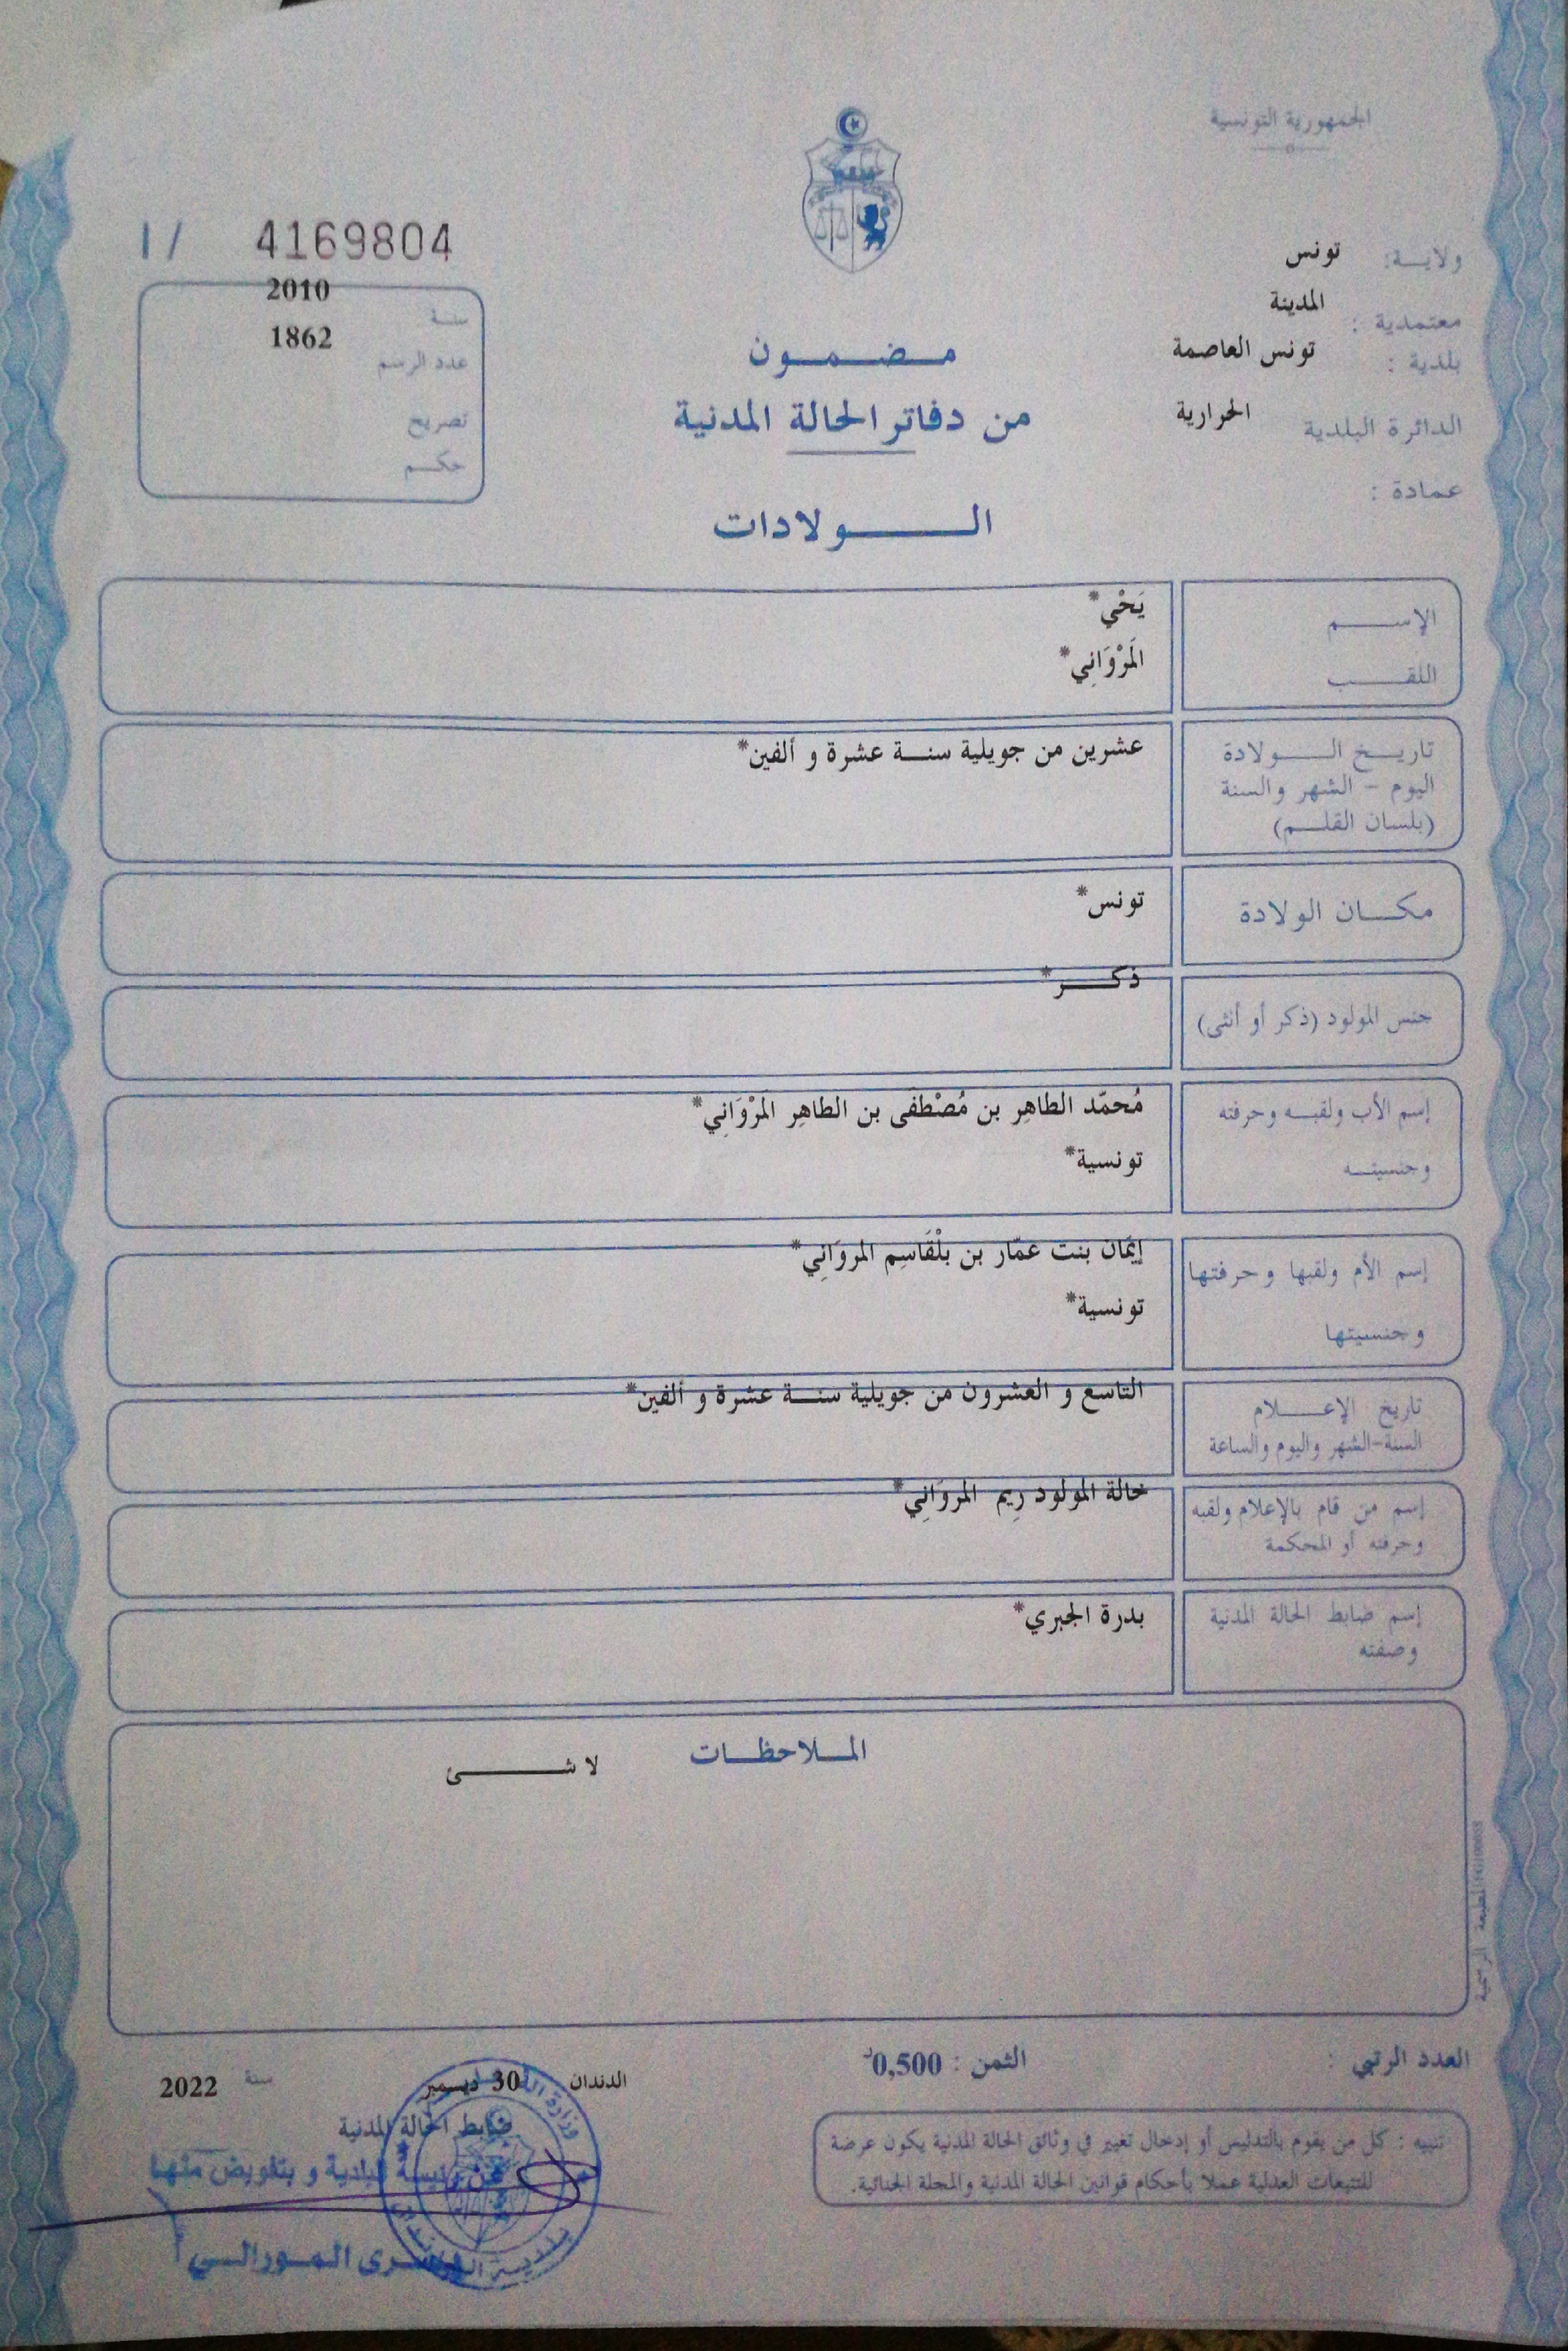 الجمهورية التونسية
ولايـــة: تونس
معتمدية : المدينة
بلدية : تونس العاصمة
الدائرة البلدية الحرارية
عمادة :
1/ 4169804
سنــة 2010
عدد الرسم 1862
تصريح
حكــم
مـضـمـون
من دفاتر الحالة المدنية
الـــولادات
الإســـم يَحْيِ*
اللقـــب المَرْوَانِي*
تاريـــخ الـــولادة عشرين من جويلية سنـــة عشرة و ألفين*
اليوم - الشهر والسنة
(بلسان القلـــم)
مكـــان الولادة تونس*
جنس المولود (ذكر أو أنثى) ذكـــر*
إسم الأب ولقبـــه وحرفته مُحمّد الطاهِر بن مُصْطفَى بن الطاهِر المَرْوَانِي*
وجنسيتـــه تونسية*
إسم الأم ولقبها وحرفتها إيمَان بنت عمّار بن بلْقَاسِم المروَانِي*
وجنسيتها تونسية*
تاريخ الإعـــلام التاسع و العشرون من جويلية سنـــة عشرة و ألفين*
السنة-الشهر واليوم والساعة
إسم من قام بالإعلام ولقبه خالة المولود رِيم المروَانِي*
وحرفته أو المحكمة
إسم ضابط الحالة المدنية بدرة الجبري*
وصفته
المـــلاحظـــات
لا شـــئ
المطبعة الرسمية
العدد الرتبي :
الثمن : 0,500د
الدندان 30 ديسمبر سنة 2022
ضابط الحالة المدنية
عن رئيسة البلدية و بتفويض منها
يسرى المورالي
تنبيه : كل من يقوم بالتدليس أو إدخال تغيير في وثائق الحالة المدنية يكون عرضة
للتتبعات العدلية عملا بأحكام قوانين الحالة المدنية والمجلة الجنائية.